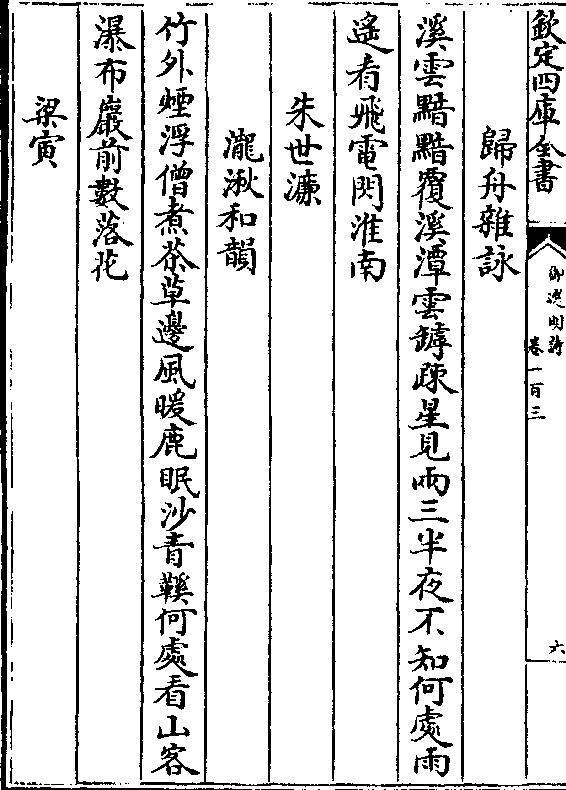 欽定四庫全書
御選明詩
卷一百三
六
歸舟雜詠
溪雲黯黯覆溪潭雲罅疎星見兩三半夜不知何處雨
遙看飛電閃淮南
朱世濂
瀧湫和韻
竹外煙浮僧煮茶草邊風暖鹿眠沙青鞵何處看山客
瀑布巖前數落花
梁寅